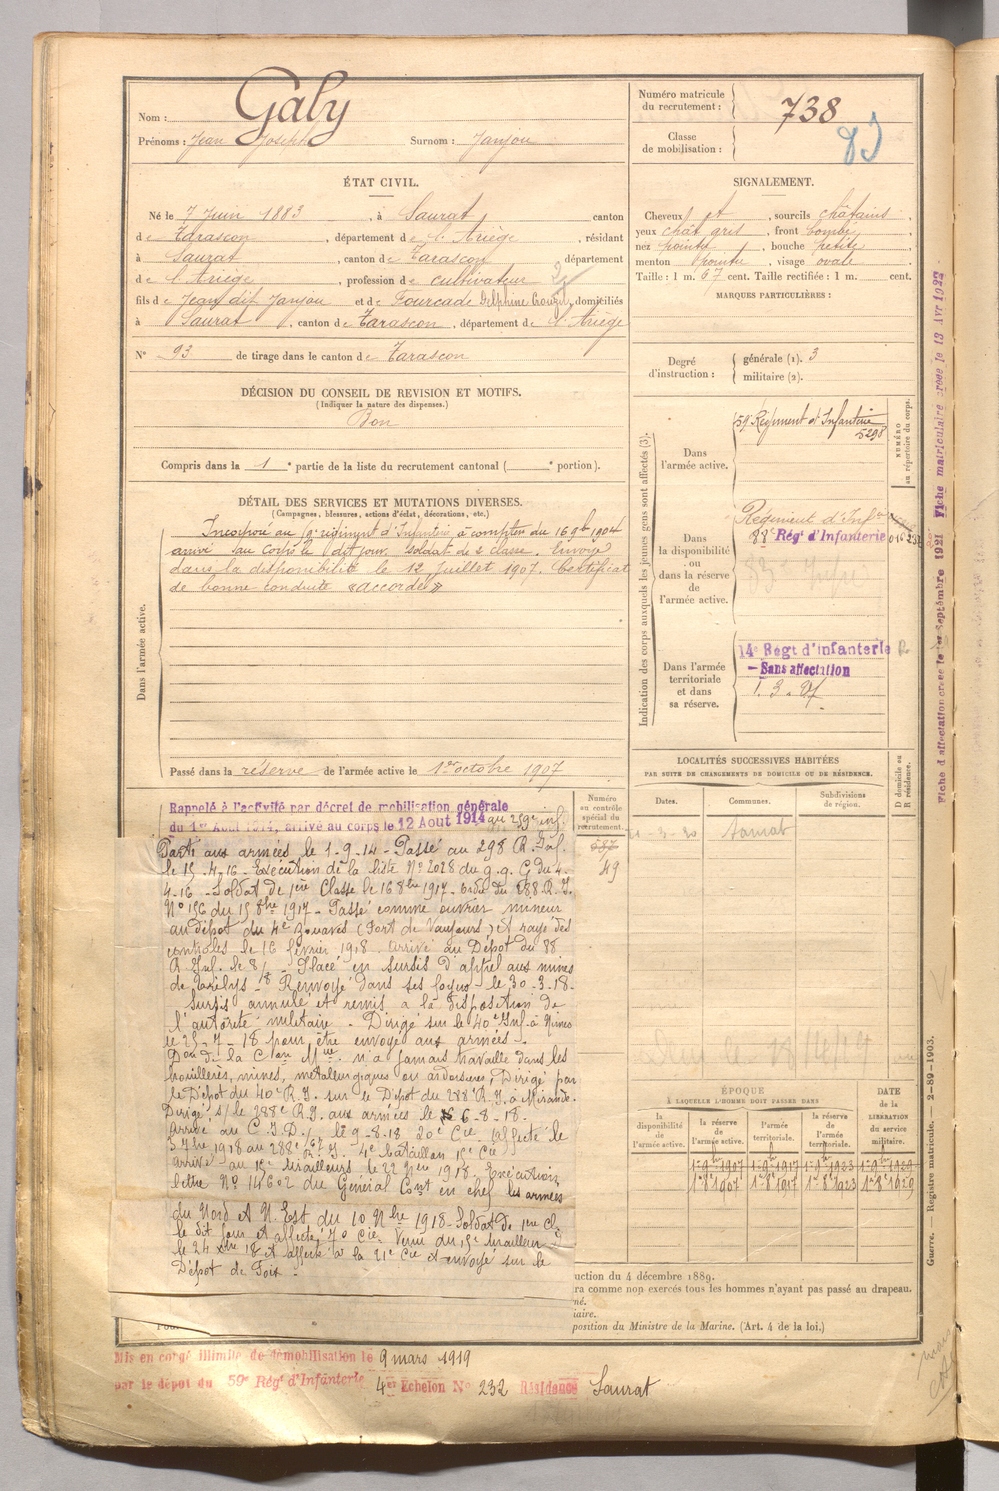 Nom : Galy
Prénoms : Jean Joseph Surnom : Janjou
Numéro matricule
du recrutement : 738
Classe
de mobilisation :
ÉTAT CIVIL.
Né le 7 Juin 1883, à Saurat canton
de Tarascon, département de l'Ariège, résidant
à Saurat, canton de Tarascon département
de l'Ariège, profession de cultivateur
fils de Jean dit Janjou et de Fourcade Delphine domiciliés
à Saurat, canton de Tarascon, département de l'Ariège
N° 93 de tirage dans le canton de Tarascon
SIGNALEMENT.
Cheveux et, sourcils châtains,
yeux chât gris, front bombé,
nez pointu, bouche petite,
menton pointu, visage ovale.
Taille : 1 m. 67 cent. Taille rectifiée : 1 m. cent.
MARQUES PARTICULIÈRES :
Degré
d'instruction :
générale (1). 3
militaire (2).
DÉCISION DU CONSEIL DE REVISION ET MOTIFS.
(Indiquer la nature des dispenses.)
Bon
Compris dans la 1e partie de la liste du recrutement cantonal ( e portion).
DÉTAIL DES SERVICES ET MUTATIONS DIVERSES.
(Campagnes, blessures, actions d'éclat, décorations, etc.)
Dans l'armée active.
Incorporé au régiment d'Infanterie à compter du 16 9bre 1904
arrivé au corps le dit jour. Soldat de 2e classe. Envoyé
dans la disponibilité le 12 Juillet 1907. Certificat
de bonne conduite «accordé»
Passé dans la réserve de l'armée active le 1er octobre 1907
Indication des corps auxquels les jeunes gens sont affectés (3).
NUMÉRO
au répertoire du corps.
Dans
l'armée active.
59e Régiment d'Infanterie
5298
Dans
la disponibilité
ou
dans la réserve de
l'armée active.
Régiment d'Infie
88e Régt d'Infanterie
Dans l'armée
territoriale
et dans
sa réserve.
14e Régt d'infanterie
- Sans affectation
LOCALITÉS SUCCESSIVES HABITÉES
PAR SUITE DE CHANGEMENTS DE DOMICILE OU DE RÉSIDENCE.
Dates.
Communes.
Subdivisions
de région.
D domicile ou
R résidence.
Saurat
Numéro
au contrôle
spécial du
recrutement.
49
Rappelé à l'activité par décret de mobilisation générale
du 1er Août 1914, arrivé au corps le 12 Aout 1914 au 259e inf.
Parti aux armées le 1-9-14 - Passé au 298 R. Inf.
le 15-4-16 - Exécution de la liste N° 2028 du g.q.G du 4-
4-16 - Soldat de 1ère Classe le 16 8bre 1917 - ordre du R.I.
N° 196 du 15 8bre 1917 - Passé comme ouvrier mineur
au dépôt du 4e Zouaves (Fort de Vaujours) et rayé des
contrôles le 16 février 1918 arrivé au Dépôt du 88
R. Inf. le - Placé en sursis d'appel aux mines
de Renvoyé dans ses foyers le 30-3-18-
Sursis annulé et remis à la disposition de
l'autorité militaire. Dirigé sur le 40e Inf. à Nimes
le 25-7-18 pour être envoyé aux armées.
n'a jamais travaillé dans les
houillères, mines, métallurgiques ou ardoisières, Dirigé par
le Dépôt du 40e R.I. sur le Dépôt du 288e R.I. à Mirande.
Dirigé s/ le 288e R.I. aux armées le 6-8-18.
Arrivé au C.I.D. le 9-8-18 20e Cie. Affecté le
3 7bre 1918 au 288e R.I. 4e bataillon 15e Cie
arrivé au 15e tirailleurs le 22 1918. Exécution
lettre N° 14602 du Général Cont en chef les armées
du Nord et N. Est du 10 Nbre 1918 - Soldat de 1ère cl.
le dit jour et affecté 70 Cie. Venu du 15e tirailleur
le 24 xbre 18 et affecté à la 21e Cie et envoyé sur le
Dépôt de Foix -
ÉPOQUE
À LAQUELLE L'HOMME DOIT PASSER DANS
la
disponibilité
de
l'armée active.
la réserve
de
l'armée active.
l'armée
territoriale.
la réserve
de
l'armée
territoriale.
DATE
de la
LIBÉRATION
du service
militaire.
1er 9bre 1907 1er 9bre 1917 1er 9bre 1923 1er 9bre 1929
1er 8bre 1907 1er 8bre 1917 1er 8bre 1923 1er 8bre 1929
uction du 4 décembre 1889.
ra comme non exercés tous les hommes n'ayant pas passé au drapeau.
né.
iaire.
position du Ministre de la Marine. (Art. 4 de la loi.)
Mis en congé illimité de démobilisation le 9 mars 1919
par le dépôt du 59e Régt d'Infanterie 4er Échelon N° 232 Résidence Saurat
Guerre. — Registre matricule. — 2-89-1903.
Fiche d'affectation créée le 1er septembre 1921 Fiche matriculaire créée le 13 Avr 1922